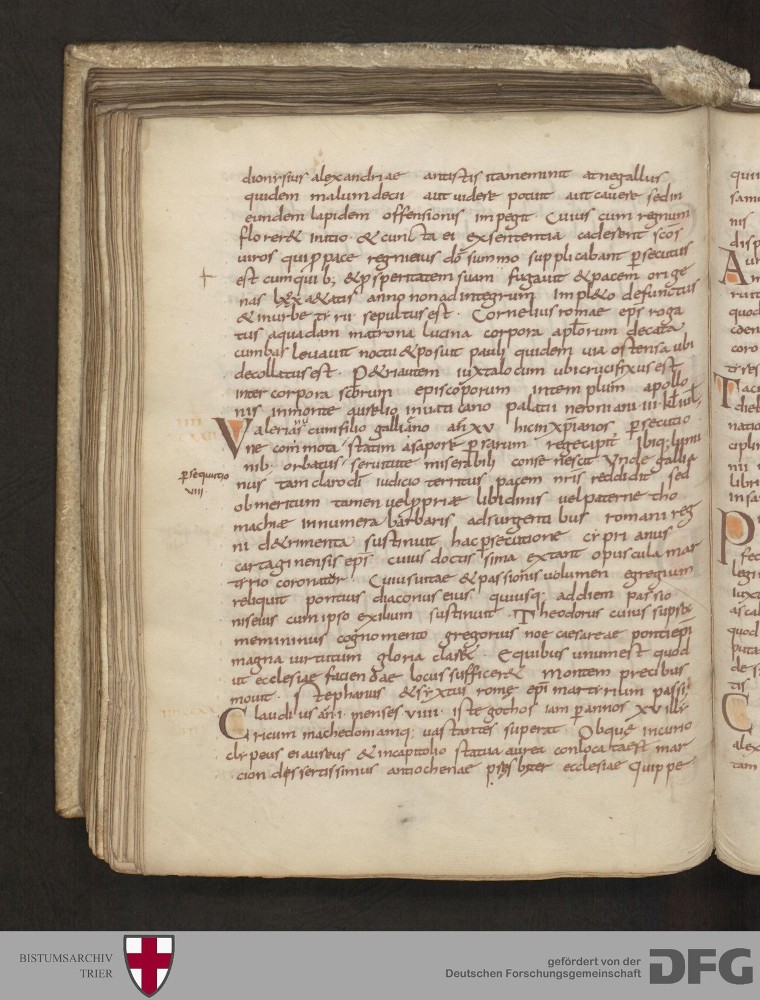 dionisius alexandriae antistis itameminit atnegallus
quidem malumdecii aut videre potuit aut cavere sedin
eundem lapidem offensionis impegit · Cuius cum regnum
florer& initio · & cuncta ei exsententia cederent scos
viros qui ppace regnieius dō summo supplicabant psecutus
est cumquib; & psperitatem suam fugavit & pacem orige
nas lxx a&atis anno nonad integrum impl&o defunctus
& inurbe tirii sepultus est · Cornelius romae eps roga
tus aquadam matrona lucina corpora aplorum decata
cumbas levavit noctu & posuit pauli quidem via ostensa ubi
decollatus est · P&ri autem iuxta locum ubi crucifixus est
inter corpora scorum episcoporum intemplum apollo
nis inmonte aurelio invaticano palatii neroniani iii kl iul
Valerianus cumfilio galliano an xv hic inxpianos psecutio
ne commota statim asapore persarum rege cipit ibiq; lumi
nib; orbatus servitute miserabili consenescit Unde gallie
nus tam claro di iudicio territus pacem nris reddidit sed
ob meritum tamen vel ppriae libidinis vel paterne tho
machiae innumera barbaris adsurgentibus romani reg
ni d&rimenta sustinuit hac psecutione ciprianus
cartaginensis eps cuius doctissima extant opuscula mar
tirio coronatur · Cuius vitae & passionis volumen egregium
reliquit pontius diaconus eius quiusq; ad diem passio
nis eius cum ipso exilium sustinuit · Theodorus cuius supra
meminimus cognomento gregorius noe caesareae ponti epi
magna virtutum gloria claret · E quibus unum est quod
ut ecclesiae faciendae locus sufficer& montem precibus
movit · Stephanus & syxtus rome epi martirium passi
Claudius an i · menses viiii · iste gothos iam p annos xv illi
ricum machedoniamq; vastantes superat Obque incurio
clipeus ei aureus & incapitolio statua aurea conlocata est mar
cion dissertissimus antiochenae psbiter ecclesiae quippe
psequutio
viiii ·
BISTUMSARCHIV
TRIER
gefördert von der
Deutschen Forschungsgemeinschaft
DFG